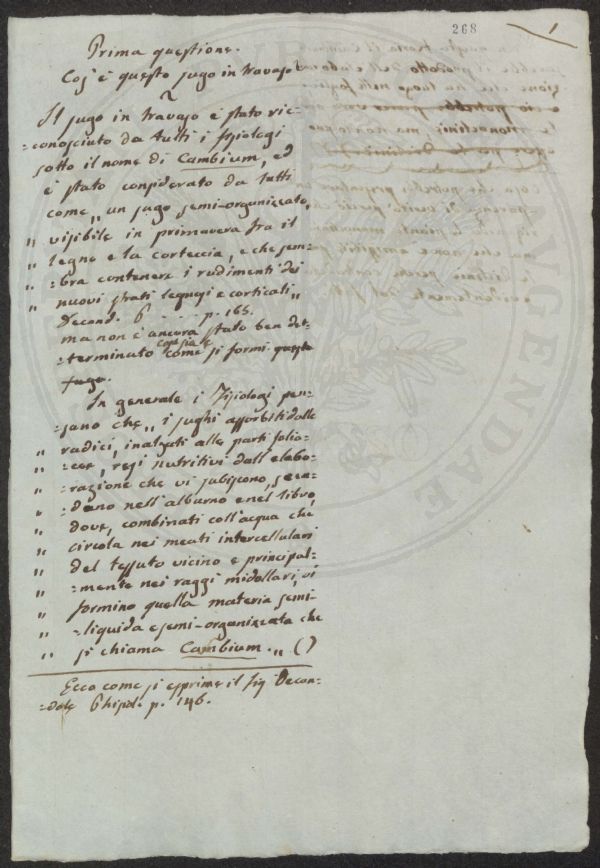 268
1
Prima questione.
Cos'è questo sugo in travaso?
Il sugo in travaso è stato ric=
=conosciuto da tutti i fisiologi
sotto il nome di Cambium, ed
è stato considerato da tutti
come „ un sugo semi-organizzato,
„ visibile in primavera fra il
„ legno e la corteccia, e che sem=
„ =bra contenere i rudimenti dei
„ nuovi strati legnosi e corticali „
Decand. p. 165.
ma non è ancora stato ben det=
cosa sia e
=terminato come si formi questo
sugo.
In generale i Fisiologi pen=
=sano che „ i sughi assorbiti dalle
„ radici, inalzati alle parti folia=
„ =cee, resi nutritivi dall'elabo=
„ =razione che vi subiscono, scen=
„ dano nell'alburno e nel libro,
„ dove, combinati coll'acqua che
„ circola nei meati intercellulari
„ del tessuto vicino e principal=
„ =mente nei raggi midollari, vi
„ formino quella materia semi=
„ =liquida e semi-organizzata che
„ si chiama Cambium. „ ()
Ecco come si esprime il Sig. Decan=
=dole Phisiol. p. 146.